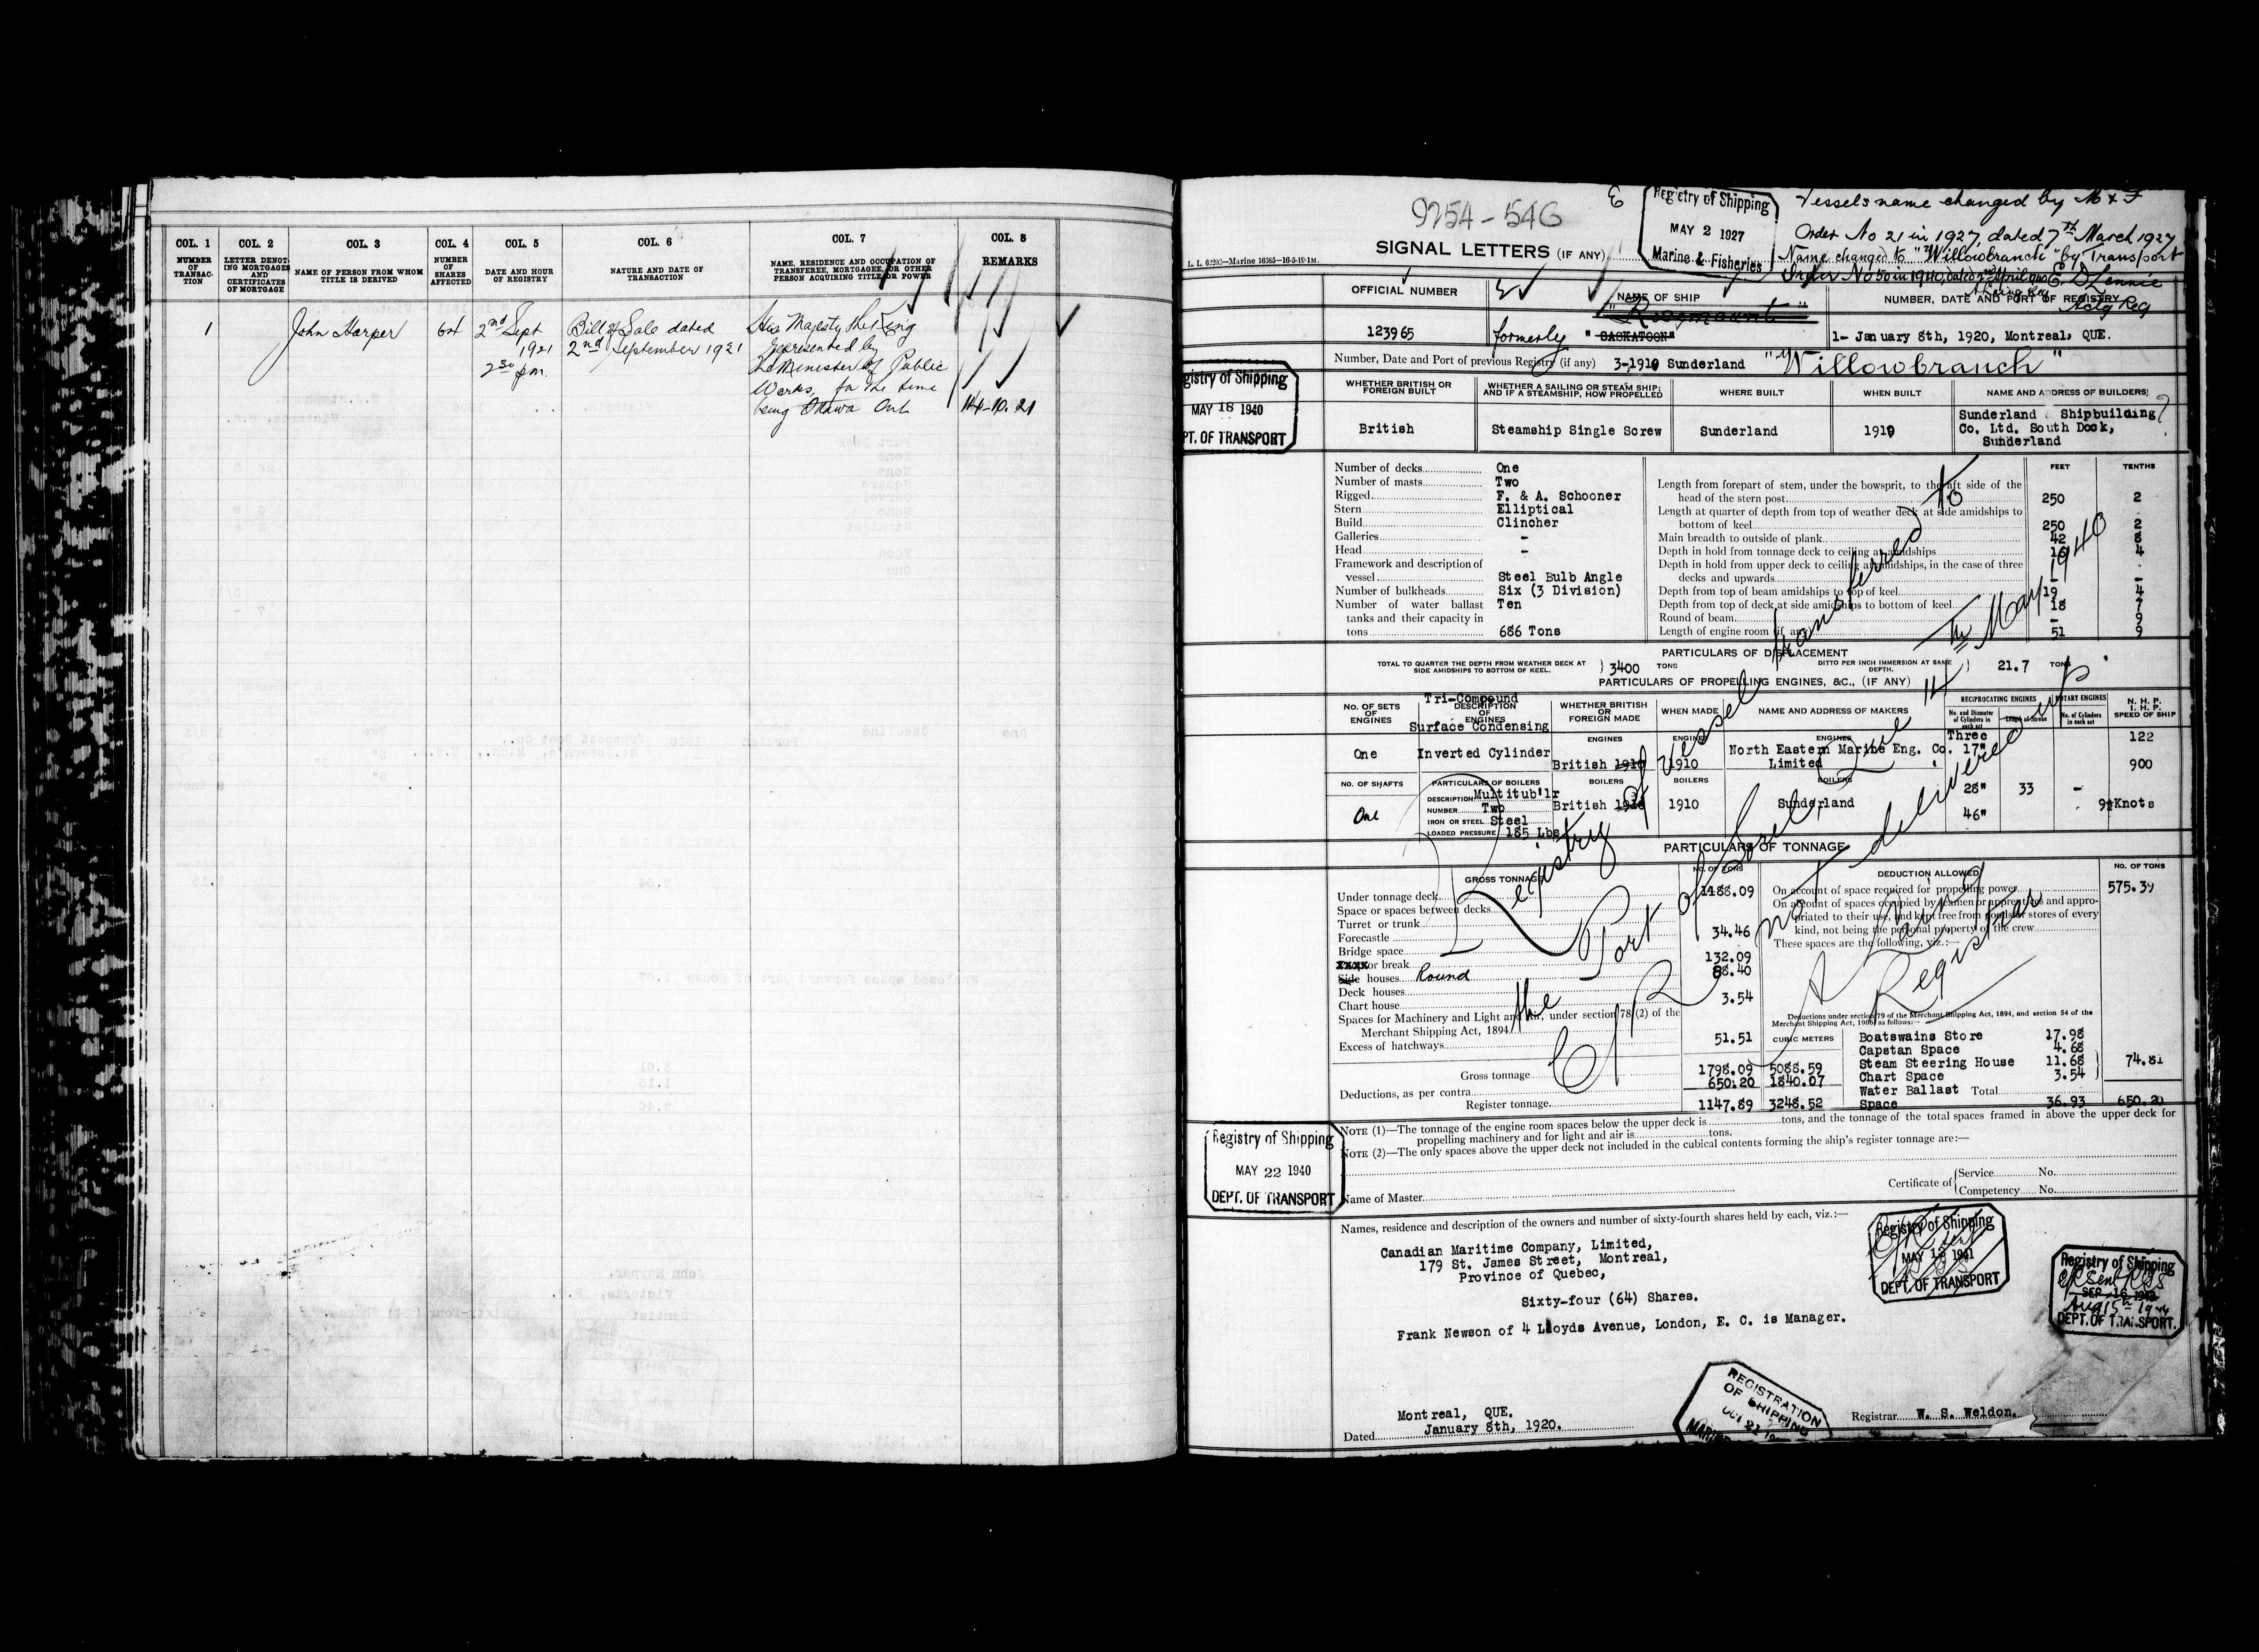 COL. 1
NUMBER OF TRANSAC-TION
COL. 2
LETTER DENOT-ING MORTGAGES AND CERTIFICATES OF MORTGAGE
COL. 3
NAME OF PERSON FROM WHOM TITLE IS DERIVED
COL. 4
NUMBER OF SHARES AFFECTED
COL. 5
DATE AND HOUR OF REGISTRY
COL. 6
NATURE AND DATE OF TRANSACTION
COL. 7
NAME, RESIDENCE AND OCCUPATION OF TRANSFEREE, MORTGAGEE, OR OTHER PERSON ACQUIRING TITLE OR POWER
COL. 8
REMARKS
1
John Harper
64
2nd Sept
1921
2 30 pm
Bill of Sale dated
2nd September 1921
His Majesty the King
represented by
The Minister of Public
Works, for the time
being Ottawa Ont
14-10.21
9254-54G
SIGNAL LETTERS (IF ANY)
L. L. 62203—Marine 16585—16-5-19-1M.
Registry of Shipping
MAY 2 1927
Marine & Fisheries
Vessels name changed by M & F
Order No 21 in 1927, dated 7th March 1927
Name changed to "Willowbranch" by Transport
Order No 50 in 1940, dated 2nd April 1940
E. D. Lennie
Actg Reg
OFFICIAL NUMBER
123965
NAME OF SHIP
"Rosemount"
formerly "SASKATOON"
NUMBER, DATE AND PORT OF REGISTRY
1- January 8th, 1920, Montreal, QUE.
Number, Date and Port of previous Registry (if any) 3-1910 Sunderland
"Willowbranch"
Registry of Shipping
MAY 18 1940
DEPT. OF TRANSPORT
WHETHER BRITISH OR FOREIGN BUILT
British
WHETHER A SAILING OR STEAM SHIP; AND IF A STEAMSHIP, HOW PROPELLED
Steamship Single Screw
WHERE BUILT
Sunderland
WHEN BUILT
1910
NAME AND ADDRESS OF BUILDERS
Sunderland Shipbuilding
Co. Ltd. South Dock,
Sunderland
Number of decks One
Number of masts Two
Rigged F. & A. Schooner
Stern Elliptical
Build Clincher
Galleries -
Head -
Framework and description of
vessel Steel Bulb Angle
Number of bulkheads Six (3 Division)
Number of water ballast Ten
tanks and their capacity in
tons 686 Tons
FEET TENTHS
Length from forepart of stem, under the bowsprit, to the aft side of the
head of the stern post 250 2
Length at quarter of depth from top of weather deck at side amidships to
bottom of keel 250 2
Main breadth to outside of plank 42 8
Depth in hold from tonnage deck to ceiling at amidships 16 4
Depth in hold from upper deck to ceiling at amidships, in the case of three
decks and upwards - -
Depth from top of beam amidships to top of keel 19 4
Depth from top of deck at side amidships to bottom of keel 18 7
Round of beam - 9
Length of engine room (if any) 51 9
PARTICULARS OF DISPLACEMENT
TOTAL TO QUARTER THE DEPTH FROM WEATHER DECK AT SIDE AMIDSHIPS TO BOTTOM OF KEEL. 3400 TONS
DITTO PER INCH IMMERSION AT SAME DEPTH. 21.7 TONS
PARTICULARS OF PROPELLING ENGINES, &C., (IF ANY)
NO. OF SETS OF ENGINES
One
Tri-Compound
DESCRIPTION OF ENGINES
Surface Condensing
Inverted Cylinder
WHETHER BRITISH OR FOREIGN MADE
ENGINES
British 1910
WHEN MADE
ENGINES
1910
NAME AND ADDRESS OF MAKERS
ENGINES
North Eastern Marine Eng. Co.
Limited
RECIPROCATING ENGINES
No. and Diameter of Cylinders in each set
Length of Stroke
ROTARY ENGINES
No. of Cylinders in each set
N. H. P.
I. H. P.
SPEED OF SHIP
Three
17"
28"
46"
33
-
122
900
9½Knots
NO. OF SHAFTS
One
PARTICULARS OF BOILERS
DESCRIPTION Multitub'lr
NUMBER Two
IRON OR STEEL Steel
LOADED PRESSURE 185 Lbs
BOILERS
British 1910
BOILERS
1910
BOILERS
Sunderland
PARTICULARS OF TONNAGE
GROSS TONNAGE
NO. OF TONS
Under tonnage deck 1488.09
Space or spaces between decks
Turret or trunk
Forecastle 34.46
Bridge space
or break 132.09
Side houses Round 88.40
Deck houses
Chart house 3.54
Spaces for Machinery and Light and Air, under section 78 (2) of the
Merchant Shipping Act, 1894
Excess of hatchways 51.51
CUBIC METERS
Gross tonnage 1798.09 5088.59
Deductions, as per contra 650.20 1840.07
Register tonnage 1147.89 3248.52
DEDUCTION ALLOWED
NO. OF TONS
On account of space required for propelling power 575.39
On account of spaces occupied by seamen or apprentices and appro-
priated to their use, and kept free from goods or stores of every
kind, not being the personal property of the crew
These spaces are the following, viz.:—
Deductions under section 79 of the Merchant Shipping Act, 1894, and section 54 of the
Merchant Shipping Act, 1906, as follows:—
Boatswains Store 17.98
Capstan Space 4.68
Steam Steering House 11.68
Chart Space 3.54
74.81
Water Ballast Total
Space 36.93 650.20
Registry of vessel transferred to
Port of Sorel, Que 14th May 1940
the C/R not delivered up.
A Laing
Registrar
NOTE (1)—The tonnage of the engine room spaces below the upper deck is tons, and the tonnage of the total spaces framed in above the upper deck for
propelling machinery and for light and air is tons.
NOTE (2)—The only spaces above the upper deck not included in the cubical contents forming the ship's register tonnage are:—
Registry of Shipping
MAY 22 1940
DEPT. OF TRANSPORT
Name of Master
Certificate of
Service No.
Competency No.
Names, residence and description of the owners and number of sixty-fourth shares held by each, viz.:—
Canadian Maritime Company, Limited,
179 St. James Street, Montreal,
Province of Quebec,
Sixty-four (64) Shares.
Frank Newson of 4 Lloyds Avenue, London, E. C. is Manager.
Registry of Shipping
MAY 13 1941
DEPT OF TRANSPORT
Registry of Shipping
SEP 16
DEPT. OF TRANSPORT.
REGISTRATION
OF SHIPPING
Montreal, QUE.
Dated January 8th, 1920.
Registrar W. S. Weldon.